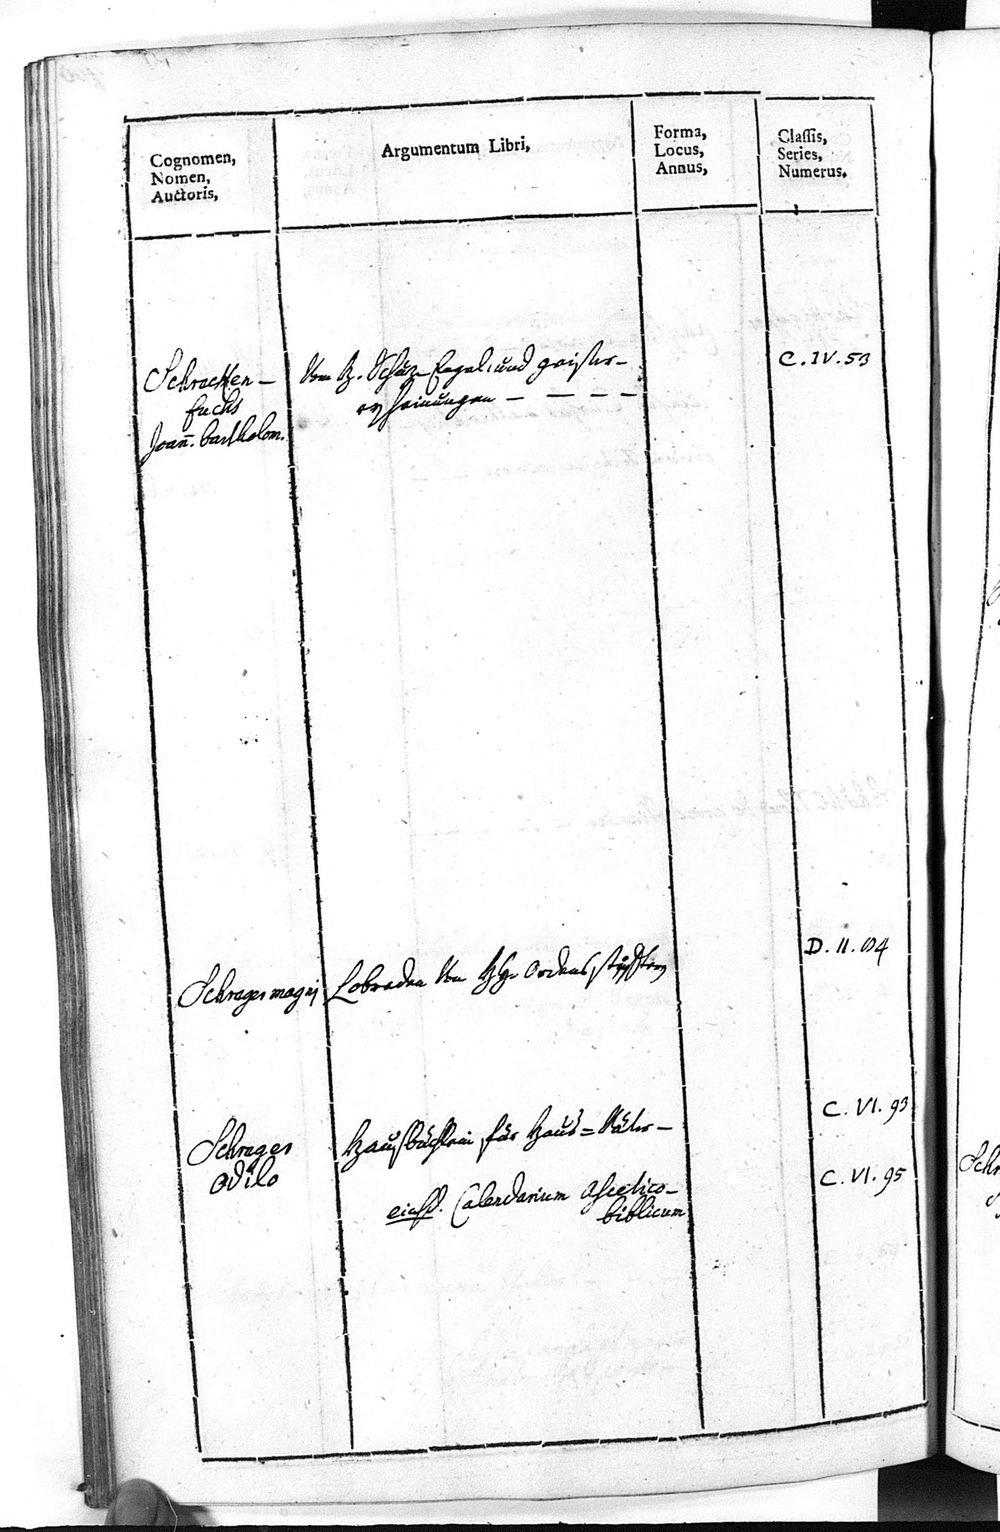 Cognomen,
Nomen,
Auctoris,
Argumentum Libri,
Forma,
Locus,
Annus,
Classis,
Series,
Numerus.
Schrecken-
fuchs
Joan̄. barthelom.
Von H. Schuz-Engel, und geister-
erscheinungen - - - - -
C. IV. 53
Schrager magni
Lobreden von
Ordens
D. II. 94
Schrager
Odilo
für Haus-Väter-
C. VI. 93
eiusd. Calendarium Ascetico-
biblicum
C. VI. 95
Schr